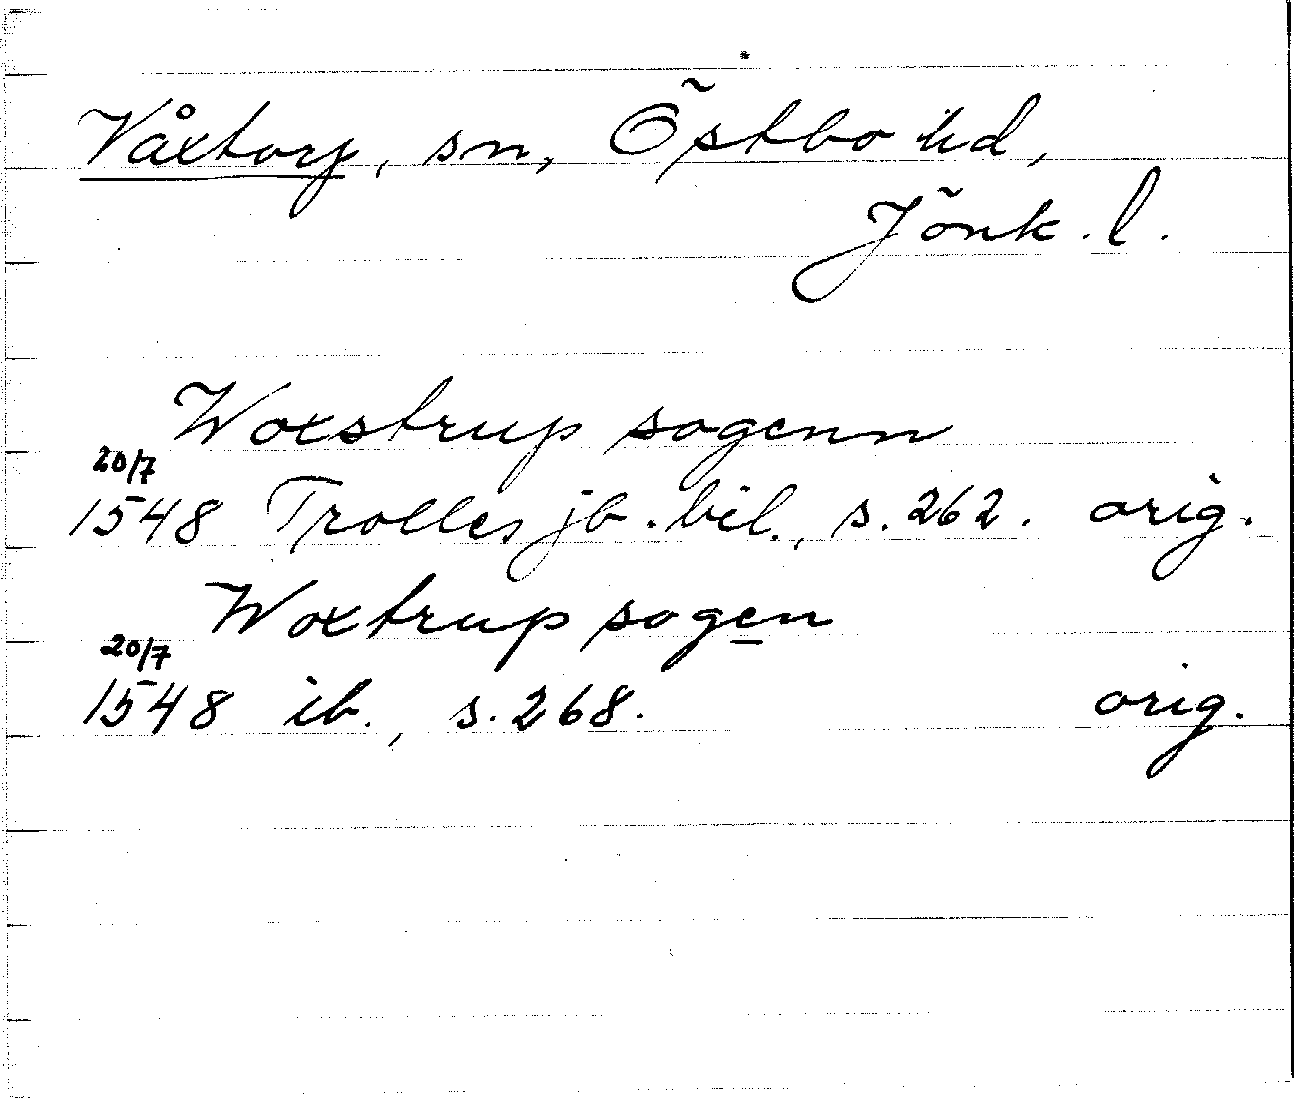 Våxtorp, sn, Östbo hd,
Jönk. l.
Woxstrup sogenn
20/7
1548 Trolles jb. bil., s. 262. orig.
Woxtrup sogen
20/7
1548 ib., s. 268. orig.